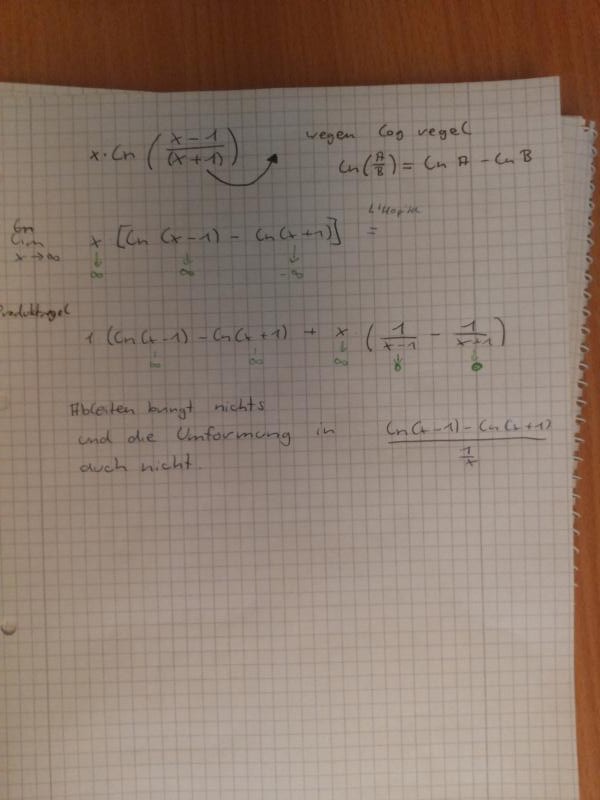 x · ln ( (x - 1) / (x + 1) )
wegen log regel
ln(A/B) = ln A - ln B
lim x → ∞ x [ln (x - 1) - ln(x + 1)] =
L'Hopital
↓ ∞ ↓ ∞ ↓ -∞
Produktregel
1 (ln(x - 1) - ln(x + 1)) + x ( 1/(x - 1) - 1/(x + 1) )
∞ ∞ ↓ ∞ ↓ 0 ↓ 0
Ableiten bringt nichts
und die Umformung in (ln(x - 1) - ln(x + 1)) / (1/x)
auch nicht.